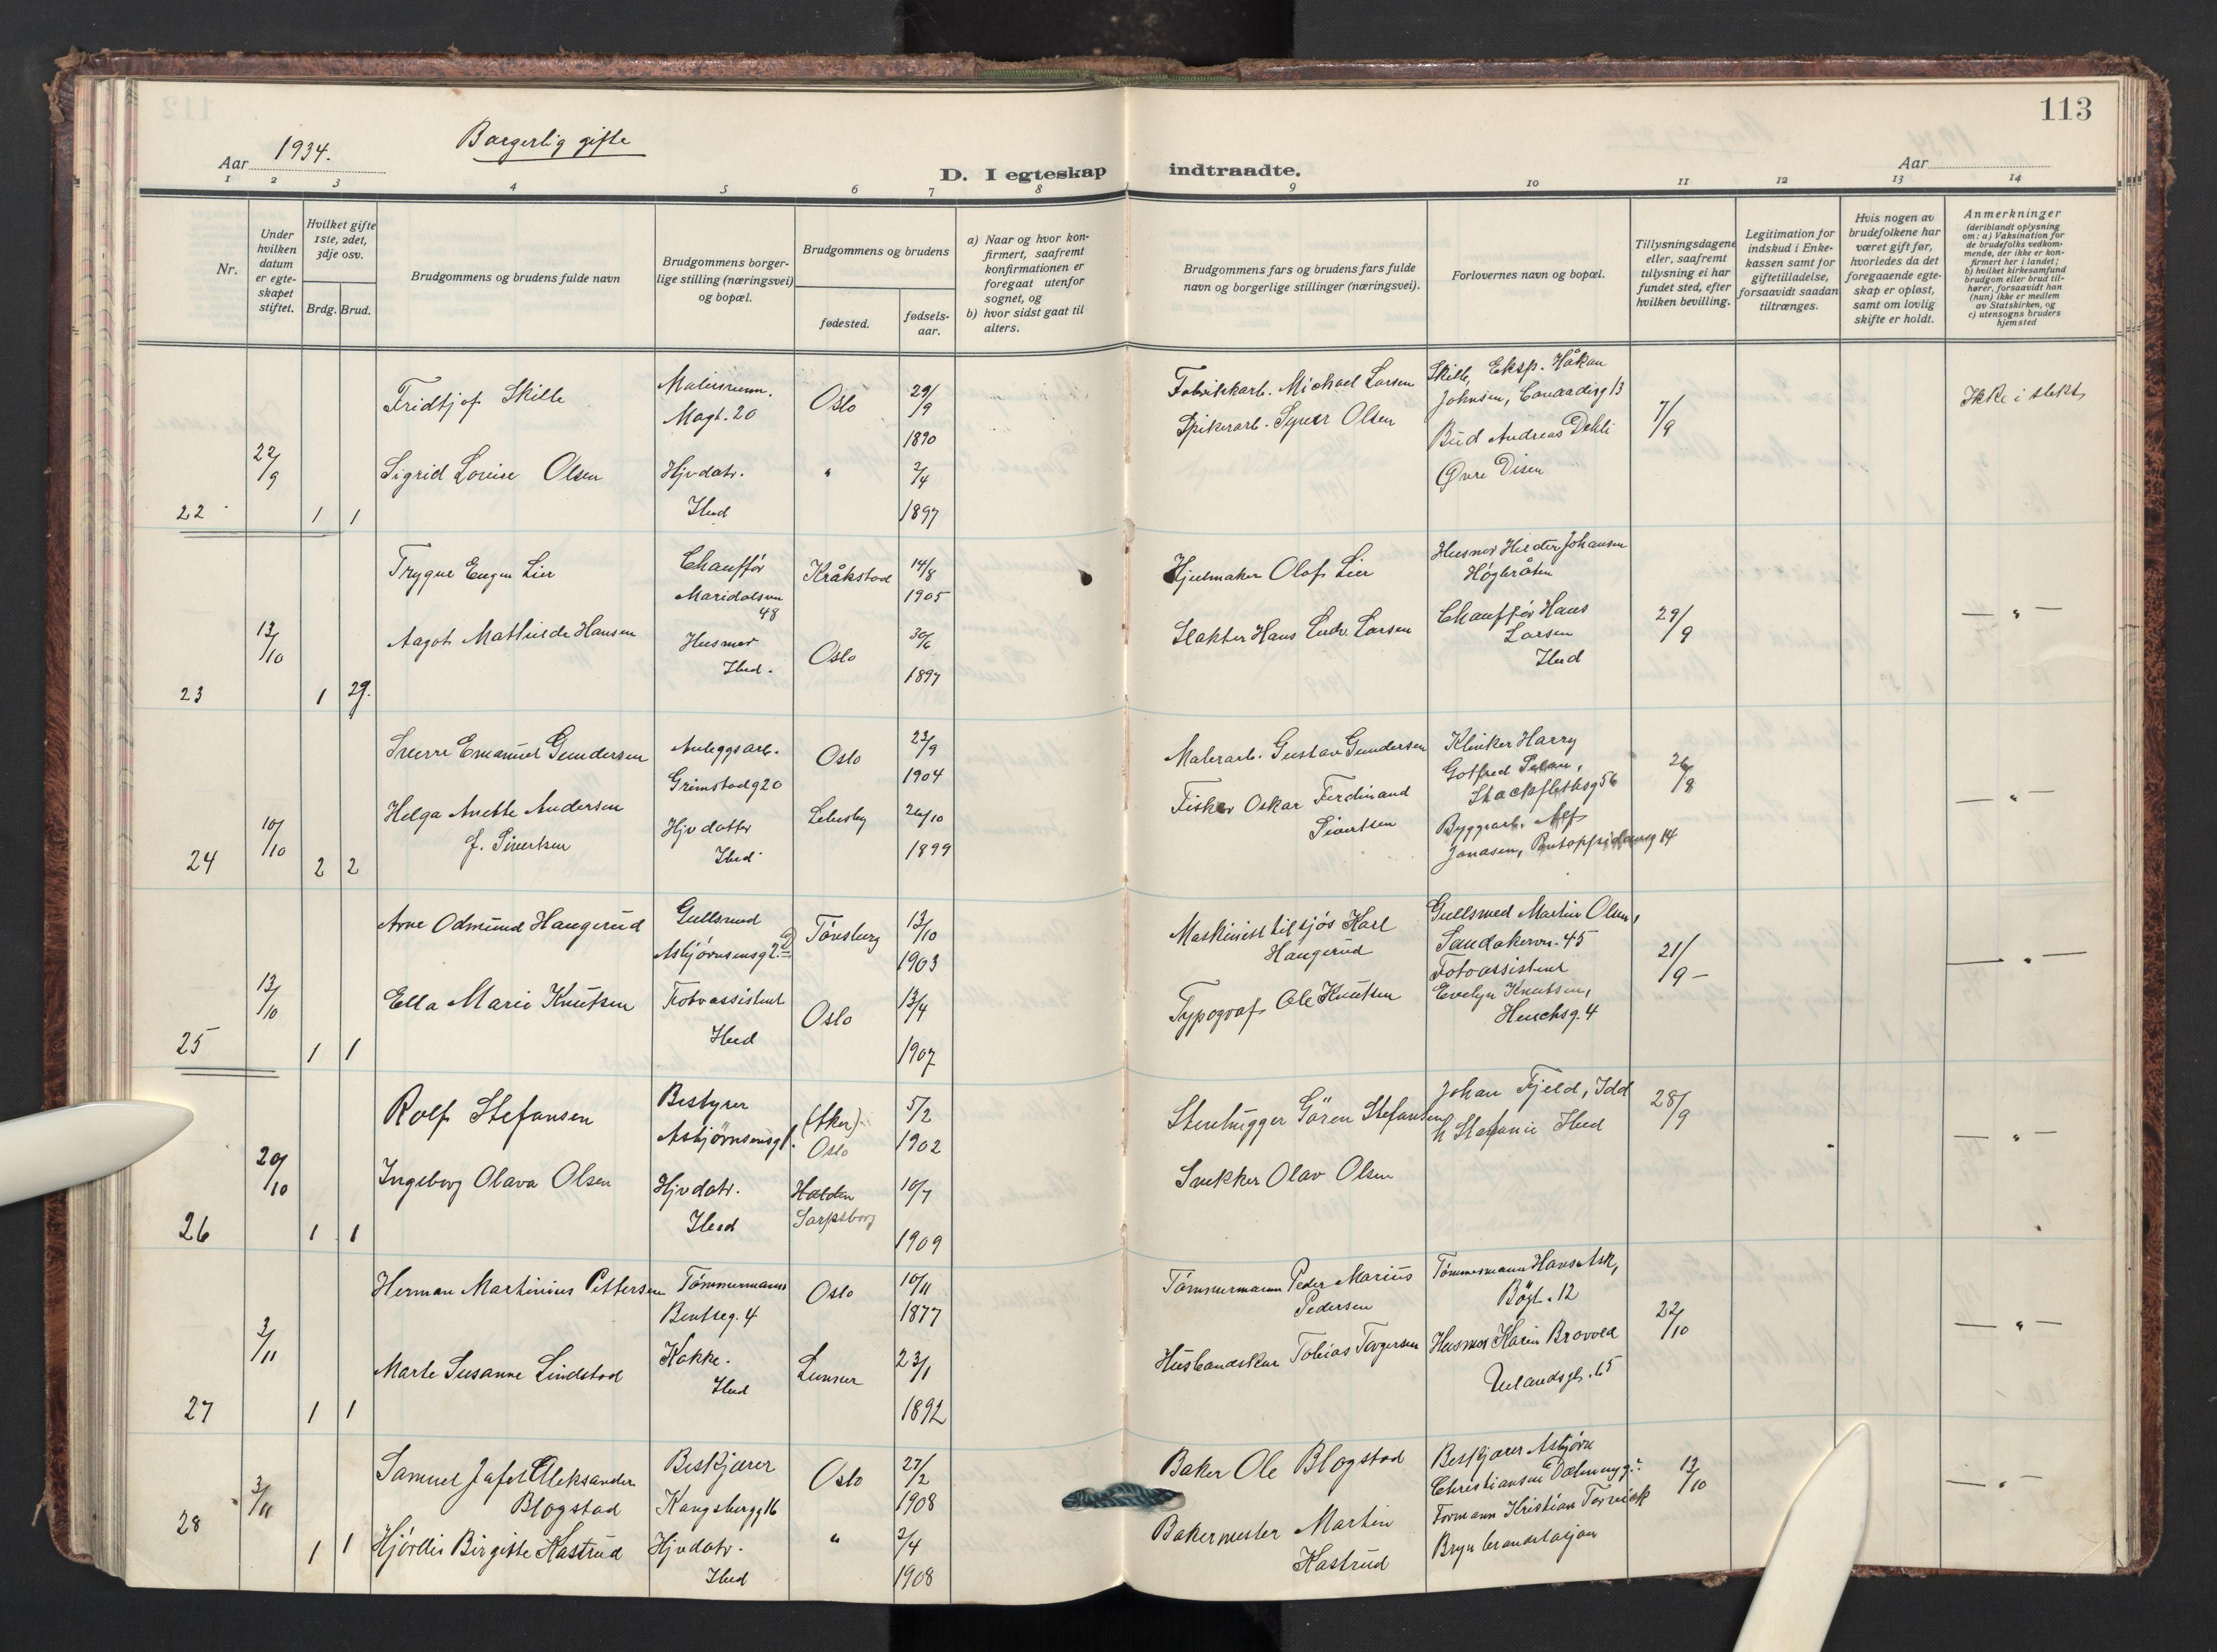 113
Aar 1934.
Borgerlig gifte
D. I egteskap indtraadte.
Aar
1 2 3 4 5 6 7 8 9 10 11 12 13 14
Nr.
Under hvilken datum er egteskapet stiftet.
Hvilket gifte 1ste, 2det, 3dje osv.
Brdg. Brud.
Brudgommens og brudens fulde navn
Brudgommens borgerlige stilling (næringsvei) og bopæl.
Brudgommens og brudens
fødested.
fødselsaar.
a) Naar og hvor konfirmert, saafremt konfirmationen er foregaat utenfor sognet, og
b) hvor sidst gaat til alters.
Brudgommens fars og brudens fars fulde navn og borgerlige stillinger (næringsvei).
Forlovernes navn og bopæl.
Tillysningsdagene eller, saafremt tillysning ei har fundet sted, efter hvilken bevilling.
Legitimation for indskud i Enkekassen samt for giftetilladelse, forsaavidt saadan tiltrænges.
Hvis nogen av brudefolkene har været gift før, hvorledes da det foregaaende egteskap er opløst, samt om lovlig skifte er holdt.
Anmerkninger (deriblandt oplysning om: a) Vaksination for de brudefolks vedkommende, der ikke er konfirmert her i landet; b) hvilket kirkesamfund brudgom eller brud tilhører, forsaavidt han (hun) ikke er medlem av Statskirken, og c) utensogns bruders hjemsted
22
22/9
1 1
Fridtjof Skille
Magt. 20
Oslo
29/9
1890
Sigrid Louise Olsen
Hjv datr.
Ibid
"
2/4
1897
Fabrikkarb. Michael Larsen
Spikerarb. Syver Olsen
Skille, Eksp. Håkan
Johnsen,
Bud Andreas Dehli
Øvre Disen
7/9
Ikke i slekt
23
13/10
1 29.
Trygve Eugen Lier
Chauffør
Maridalsvn
48
Kråkstad
14/8
1905
Aagot Mathilde Hansen
Husmor
Ibid.
Oslo
30/6
1897
Hjulmaker Olof Lier
Slakter Hans Ludv. Larsen
Husmor Johansen
Høgbråten
Chauffør Hans
Larsen
Ibid
29/9
— " —
24
10/10
2 2
Sverre Emanuel Gundersen
Anleggsarb.
Grimstadg 20
Oslo
23/9
1904
Helga Anette Andersen
f. Sivertsen
Hjv datter
Ibid
Lebesby
26/10
1899
Malerarb. Gustav Gundersen
Fisker Oskar Ferdinand
Sivertsen
Klinker Harry
Gotfred
Stockflethsg 56
Byggarb. Alf
Jonasen,
26/8
— " —
25
13/10
1 1
Arne Odmund Haugerud
Gullsmed
Asbjørnsensg 2.
Tønsberg
13/10
1903
Ella Marie Knutsen
Fotoassistent
Ibid
Oslo
13/4
1907
Maskinist til sjøs Karl
Haugerud
Typograf Ole Knutsen
Gullsmed Martin Olsen,
Sandakervn. 45
Fotoassistent
Evelyn Knutsen,
Heuchsg. 4
21/9 –
— " —
26
20/10
1 1
Rolf Stefansen
Bestyrer
Asbjørnsensg 1.
(Aker)
Oslo
5/2
1902
Ingeborg Olava Olsen
Hjv datr.
Ibid
Halden
Sarpsborg
10/7
1909
Stenhugger Gøren Stefansen
Snekker Olav Olsen
Johan Fjeld, Idd
Ibid
28/9
— " —
27
3/11
1 1
Herman Martinius Pettersen
Tømmermann
Bentseg. 4
Oslo
10/11
1877
Marte Susanne Lindstad
Kokke.
Ibid
Lunner
23/1
1892
Tømmermann Peder Marius
Pedersen
Husbandskar Tobias Torgersen
Tømmermann Hans Ask,
Bøgt. 12
Husmor Karin Brovold
Uelandsgt. 65
22/10
— " —
28
3/11
1 1
Samuel Jafet Aleksander
Blogstad
Beskjærer
Kongsbergg 16
Oslo
27/2
1908
Hjørdis Birgitte Kastrud
Hjv datr.
Ibid
"
2/4
1908
Baker Ole Blogstad
Bakermester Martin
Kastrud
Beskjærer Asbjørn
Christiansen
Formann Kristian
Bryn brandstasjon
13/10
— " —